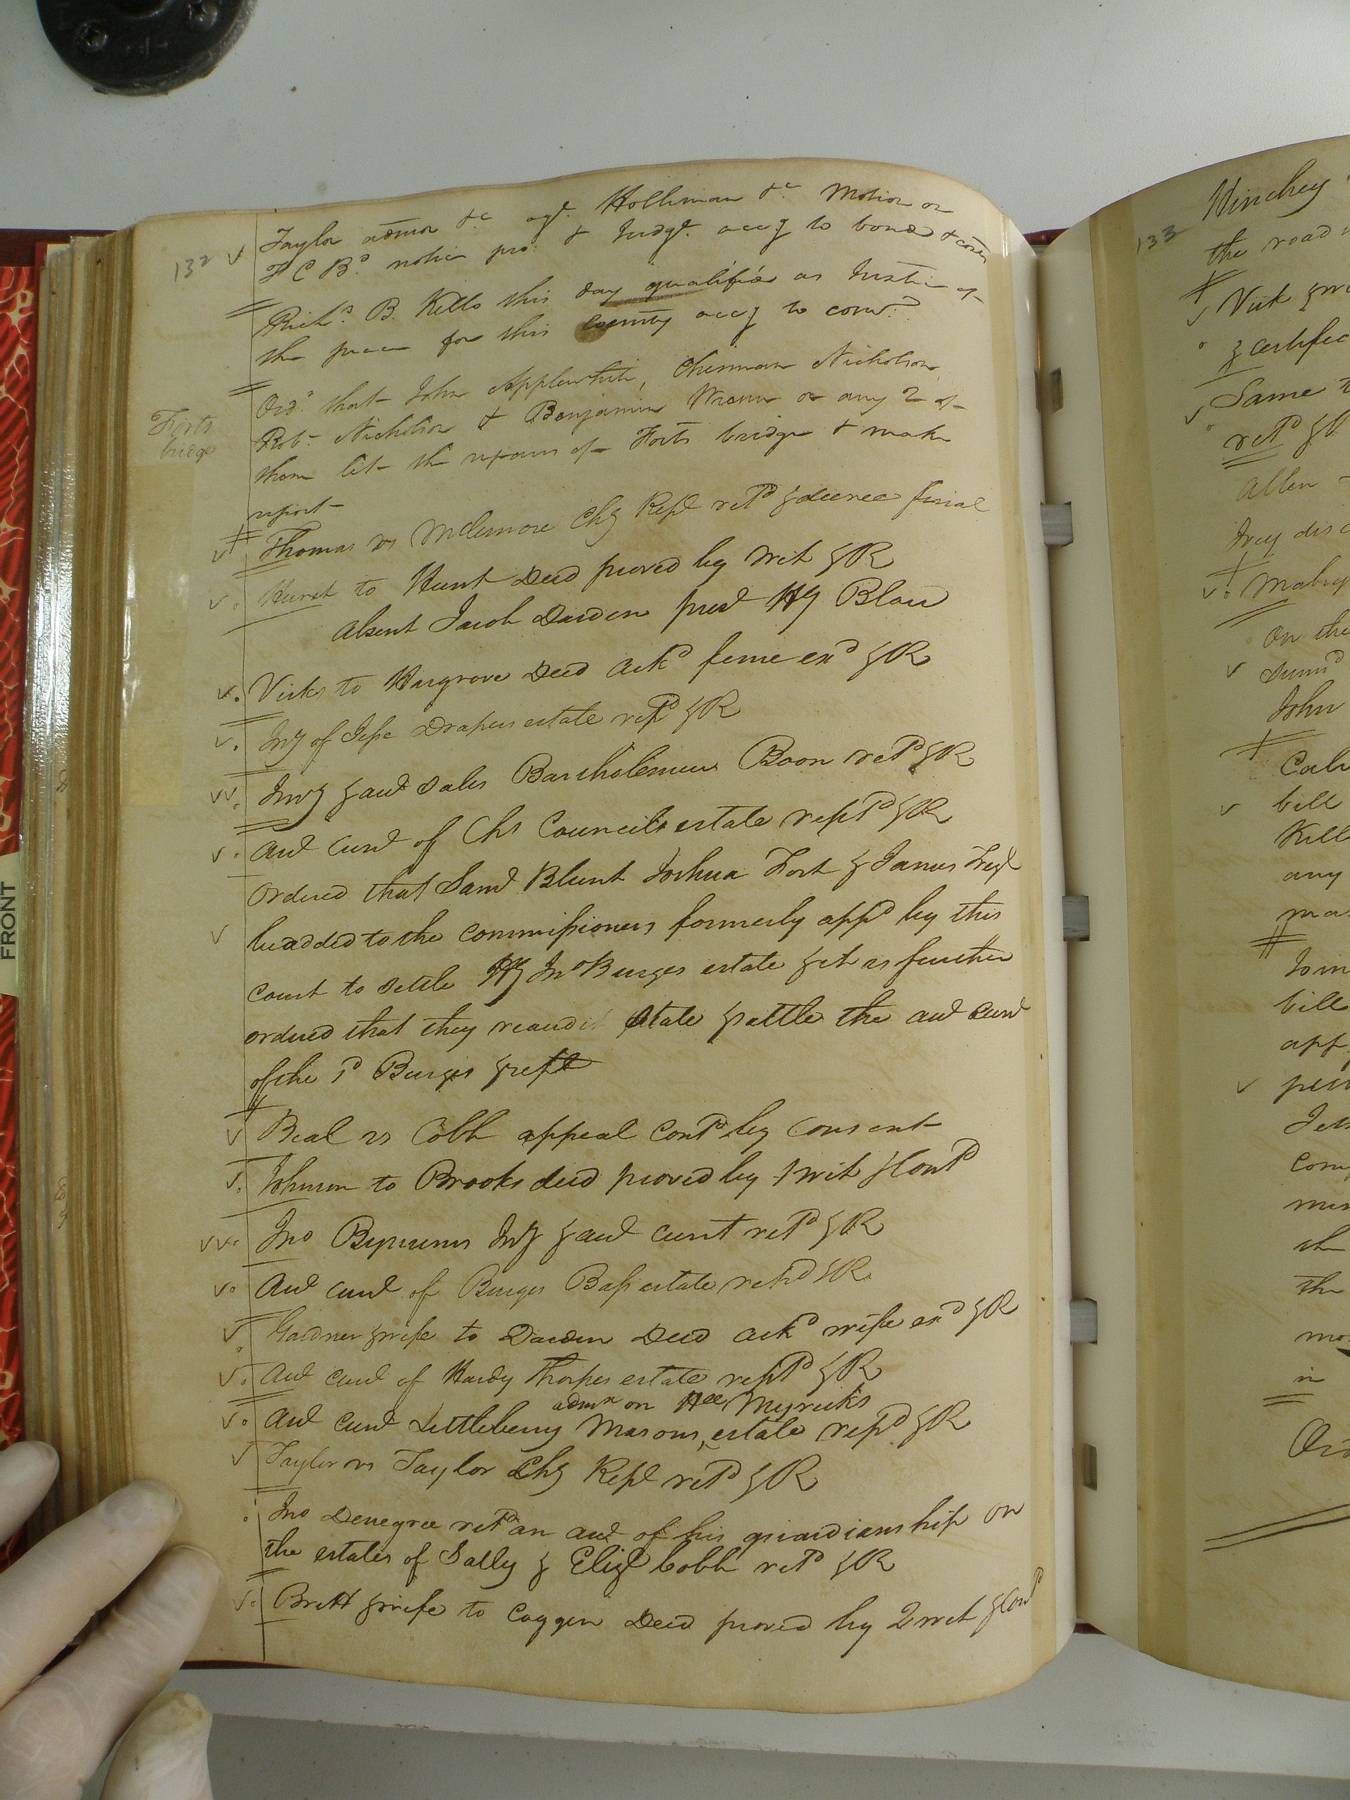 132
Taylor admor &c agt. Holliman &c Motion on
F C Bd. notice pro. & Judgt. accg to bond & costs
Richd. B. Kello this day qualified as Justice of
the peace for this County accg to
Ordd. that John Applewhite, Nicholson,
Robt. Nicholson & Benjamin or any 2 of
them let the repairs of Forts bridge & make
report
Forts
bridge
Thomas vs McLemore Chy Repl retd & decree final
Hurst to Hunt Deed proved by wit & R
Absent Jacob Darden prest Hy Blow
Vicks to Hargrove Deed ackd feme exd & R
Iny of Jesse Drapers estate retd & R
Invy & aud Sales Bartholemew Boon retd & R
aud Curt of Chs Councils estate retd & R
Ordered that Saml Blunt Joshua Fort & James
be added to the commissioners formerly appd by this
court to settle Jno Burges estate & it is further
ordered that they reaudit state & settle the aud Curt
of the sd Burges & rept
Beal vs Cobb appeal contd by consent
Johnson to Brooks deed proved by 1 wit & Contd
Jno Byrums Invy & aud curt retd & R
Aud curt of Burges Bass estate retd & R
Gardner & wife to Darden Deed ackd wife exd & R
Aud curt of Hardy Thorpes estate retd & R
admr on Myricks
Aud curt Littleberry Masons, estate retd & R
Taylor vs Taylor Chy Repl retd & R
Jno Denegree retd an aud of his guardianship on
the estates of Sally & Eliz Cobb retd & R
Brett & wife to Coggin Deed proved by 2 wit & Contd
FRONT
133
Hinchey
the road
Vick & wi
& certifie
Same t
retd & R
Allen
Ivey dis
On the
Sumd
John
bill
Kell
any
ma
Join
bill
app
com
the
mo
in
Ord